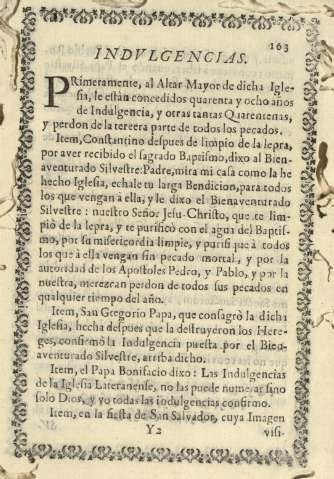 163
INDVLGENCIAS.
PRimeramente, al Altar Mayor de dicha Igle-
sia, le están concedidos quarenta y ocho años
de Indulgencia, y otras tantas Quarentenas,
y perdon de la tercera parte de todos los pecados.
Item, Constantino despues de limpio de la lepra,
por aver recibido el sagrado Baptismo, dixo al Bien-
aventurado Silvestre: Padre, mira mi casa como la he
hecho Iglesia, echale tu larga Bendicion, para todos
los que vengan à ella, y le dixo el Bienaventurado
Silvestre: nuestro Señor Jesu-Christo, que te lim-
piò de la lepra, y te purificò con el agua del Baptis-
mo, por su misericordia limpie, y purifique à todos
los que à ella vengan sin pecado mortal, y por la
autoridad de los Apostoles Pedro, y Pablo, y por la
nuestra, merezcan perdon de todos sus pecados en
qualquier tiempo del año.
Item, San Gregorio Papa, que consagrò la dicha
Iglesia, hecha despues que la destruyeron los Here-
ges, confirmò la Indulgencia puesta por el Bien-
aventurado Silvestre, arriba dicho.
Item, el Papa Bonifacio dixo: Las Indulgencias
de la Iglesia Lateranense, no las puede numerar sino
solo Dios, y yo todas las indulgencias confirmo.
Item, en la fiesta de San Salvador, cuya Imagen
Y2
visi-